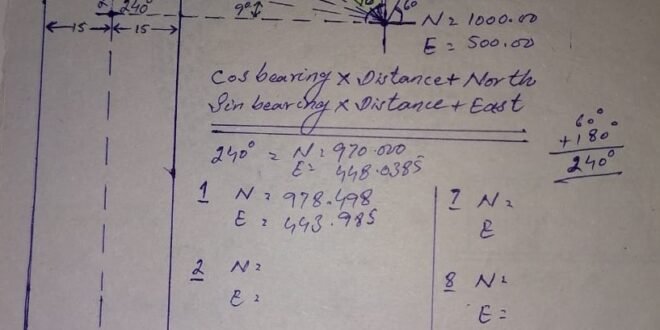 240°
9°
60
15
15
N = 1000.00
E = 500.00
Cos bearing × Distance + North
Sin bearing × Distance + East
60°
+ 180°
240°
240° = N = 970.000
E = 448.0385
1 N = 978.498
E = 443.985
2 N =
E =
7 N =
E
8 N =
E =